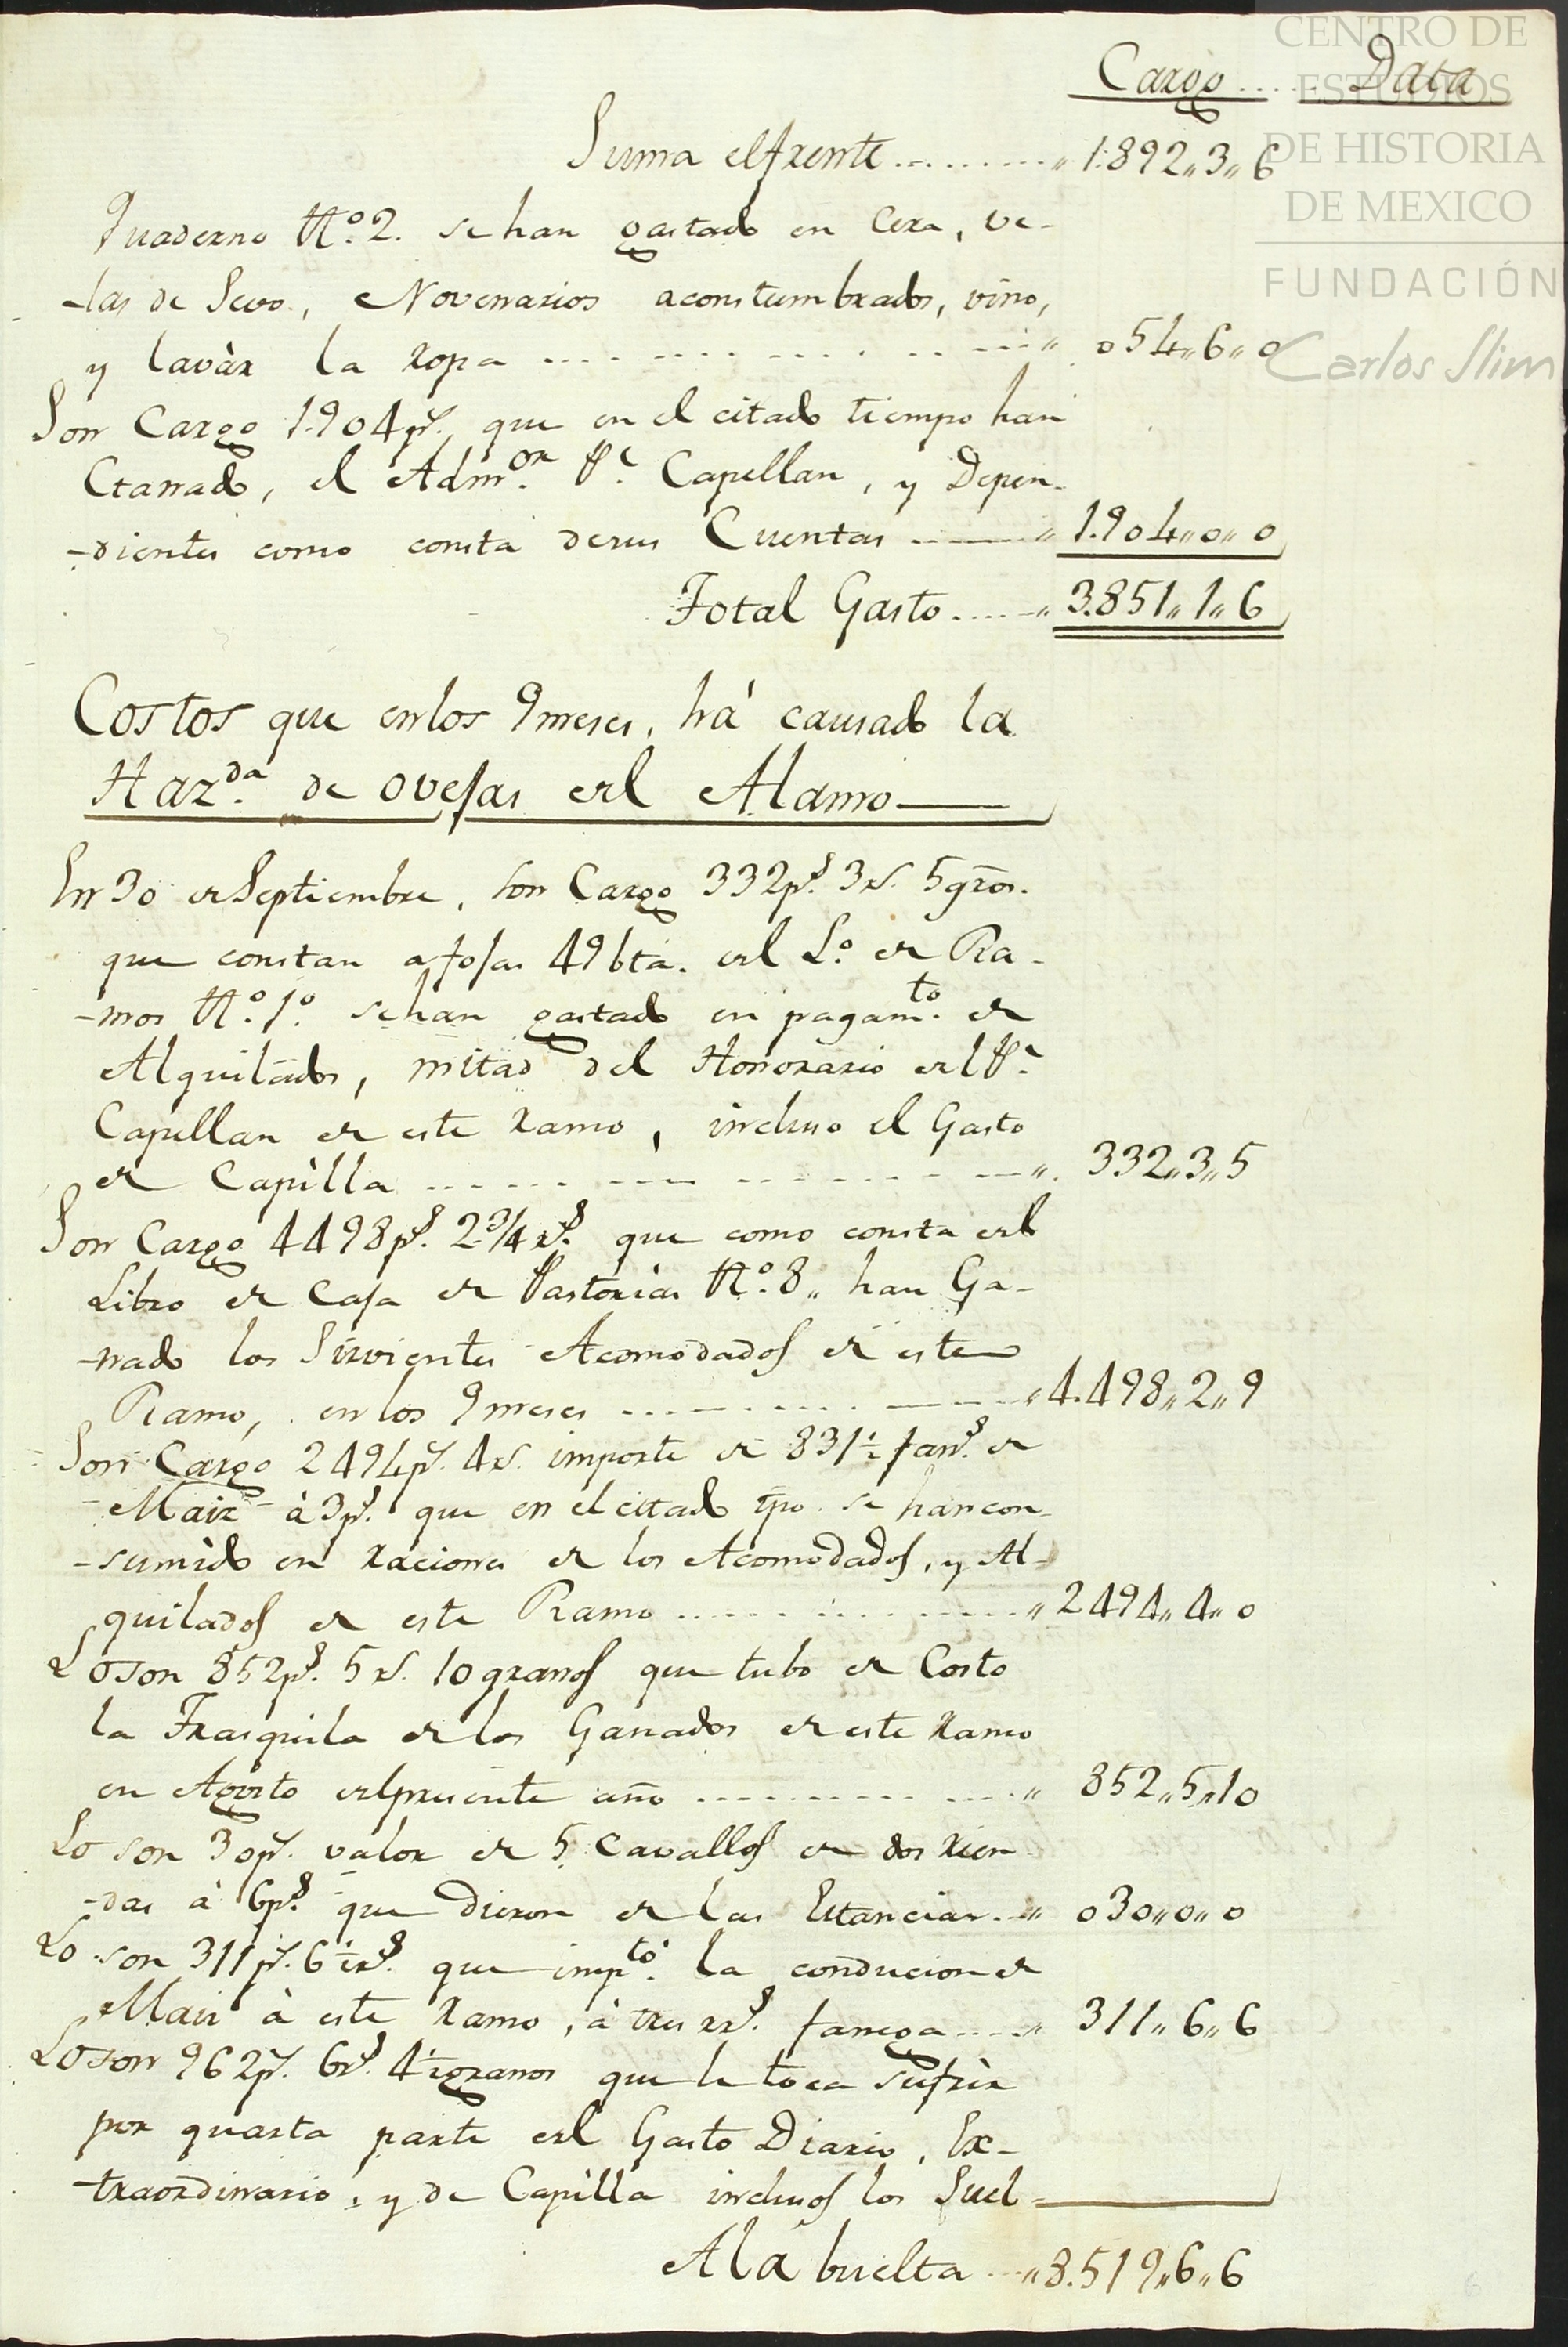 CENTRO DE
ESTUDIOS
DE HISTORIA
DE MEXICO
FUNDACIÓN
Carlos Slim
Cargo..... Data
Suma elfrente.........." 1.892,,3,,6
Quaderno N.º 2. se han gastado en Cera, ve-
-las de Sevo., Novenarios aconstumbrados, vino,
y lavàr la ropa .................." 054,,6,,0
Son Cargo 1.904 p.s que en el citado tiempo han
Ganado, el Adm.or P.e Capellan, y Depen-
-dientes como consta desus Cuentas ———" 1.904,,0,,0
Total Gasto....." 3.851,,1,,6
Costos que enlos 9 meses, há causado la
Haz.da de ovejas del Alamo
En 30 de Septiembre, son Cargo 332 p.s 3 r.s 5 grõs.
que constan afojas 49 bta. del L.º de Ra-
-mos N.º 1.º se han gastado en pagam.to de
Alquilados, mitad del Honorario del P.e
Capellan de este ramo, incluso el Gasto
de Capilla ..................". 332,,3,,5
Son Cargo 4498 p.s 2 3/4 r.s que como consta del
Libro de Caja de Pastorias N.º 8,, han Ga-
-nado los Sirvientes Acomodados de este
Ramo, en los 9 meses .................." 4.498,,2,,9
Son Cargo 2494 p.s 4 r.s importe de 831 1/2 fan.s de
Maiz à 3 p.s que en el citado tpo. se han con-
-sumido en raciones de los Acomodados, y Al-
quilados de este Ramo .................." 2494,,4,,0
Lo son 852 p.s 5 r.s 10 granos que tubo de Costo
la Trasquila de los Ganados de este ramo
en Agosto delpresente año .................." 852,,5,,10
Lo son 30 p.s valor de 5 Cavallos de dos rien-
-das à 6 p.s que Dieron de las Estancias..." 030,,0,,0
Lo son 311 p.s 6 1/2 r.s que imp.tó la conducion de
Maiz à este ramo, à tres rr.s fanega....." 311,,6,,6
Lo son 962 p.s 6 r.s 4 1/2 granos que le toca sufrir
por quarta parte del Gasto Diario, Ex-
-traordinario, y de Capilla inclusos los Suel-
A la buelta ...." 8.519,,6,,6